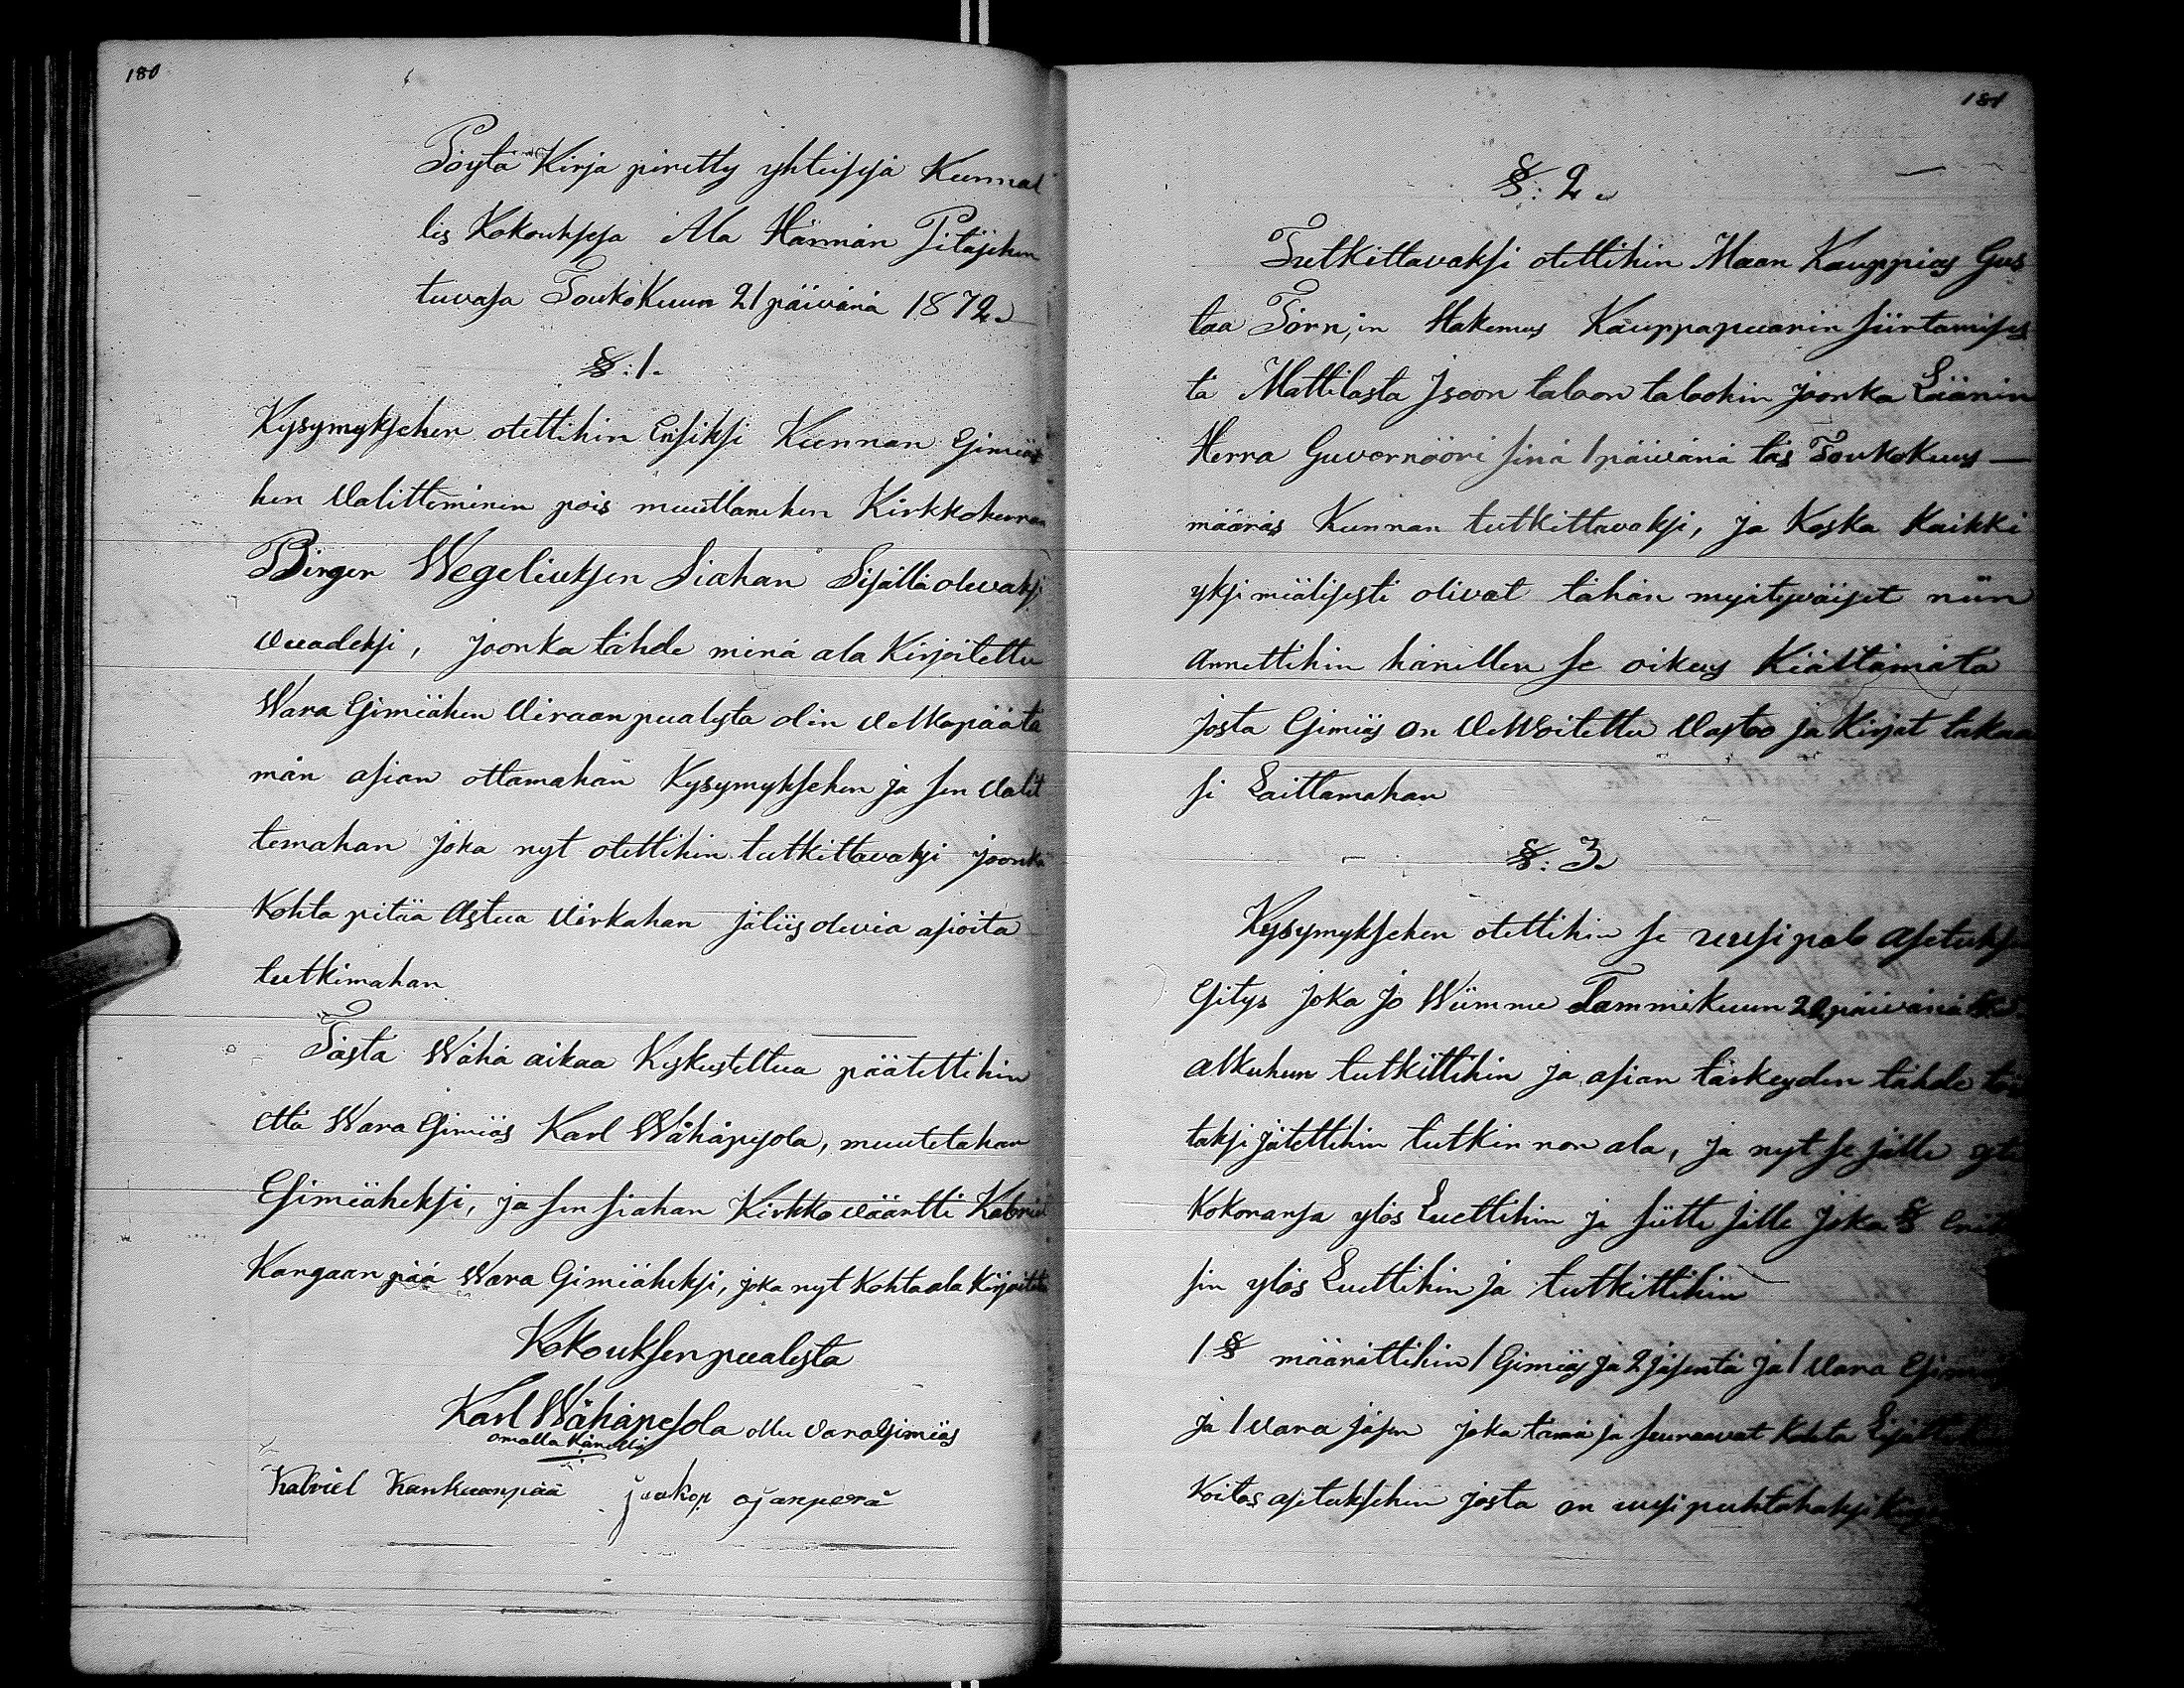 180
Pöytä Kirja piretty yhteisesä Kunnal
lis Kokouksesa Ala Härmän Pitäjehen
tuvasa Toukokuun 21 päivänä 1872.
§: 1.
Kysymyksehen otettihin Ensiksi Kunnan Esimiä
hen Valitteminen pois muuttanehen Kirkkoherran
Birger Wegeliuksen Siahan Sisällä olevaksi
vuadeksi, joonka tähde minä ala Kirjoitettu
Wara Esimiähen Viraan puálesta olin Velkapäätä
män asian ottamahan Kysymyksehen ja sen Valit
temahan joka nyt otettihin tutkittavaksi joonka
Kohta pitää Astua Virkahan jäliis olevia asioita
tutkimahan
Tästä Wähä aikaa Keskusteltua päätettihin
että Wara Esimiäs Karl Wähäpesola, muutetahan
Esimiäheksi, ja sen siahan Kirkko väärtti Kabriel
Kangaan pää Wara Esimiäheksi, joka nyt Kohta ala Kirjoitetu
Kokouksen puálesta
Karl Wähäpesola ollu vara Esimiäs
omalla Kädelläs
Kabriel Kankaanpää jaakop ojanperä
181
§: 2.
Tutkittavaksi otettihin Maan Kauppias Gus
taa Törn,in Hakemus Kauppapuarin siirtämises
tä Mattilasta Isoon taloon taloohin joonka Läänin
Herra Guvernööri sinä 1 päivänä täs Toukokuus
määräs Kunnan tutkittavaksi, ja Koska Kaikki
yksimiälisesti olivat tähän myätyväiset niin
Annettihin hänellen se oikeus Kiältämätä
josta Esimiäs on Velvoitettu Vastoo ja Kirjat takaa
si Laittamahan
§: 3.
Kysymyksehen otettihin se uusi palo asetuksen
Esitys joka jo Wiimme Tammikuun päivänä
alkuhun tutkittihin ja asian tärkeyden tähde
taksi jätettihin tutkinnon ala, ja nyt se jälle
Kokonansa ylös Luettihin ja siitte sille joka §
sin ylös Luettihin ja tutkittihin
1 § määrättihin 1 Esimiäs ja 2 jäsentä ja 1 Vara
ja 1 Vara jäsen joka tämä ja seuraavat Kohta
Koitos asetuksehen josta on uusi puhtahaksi